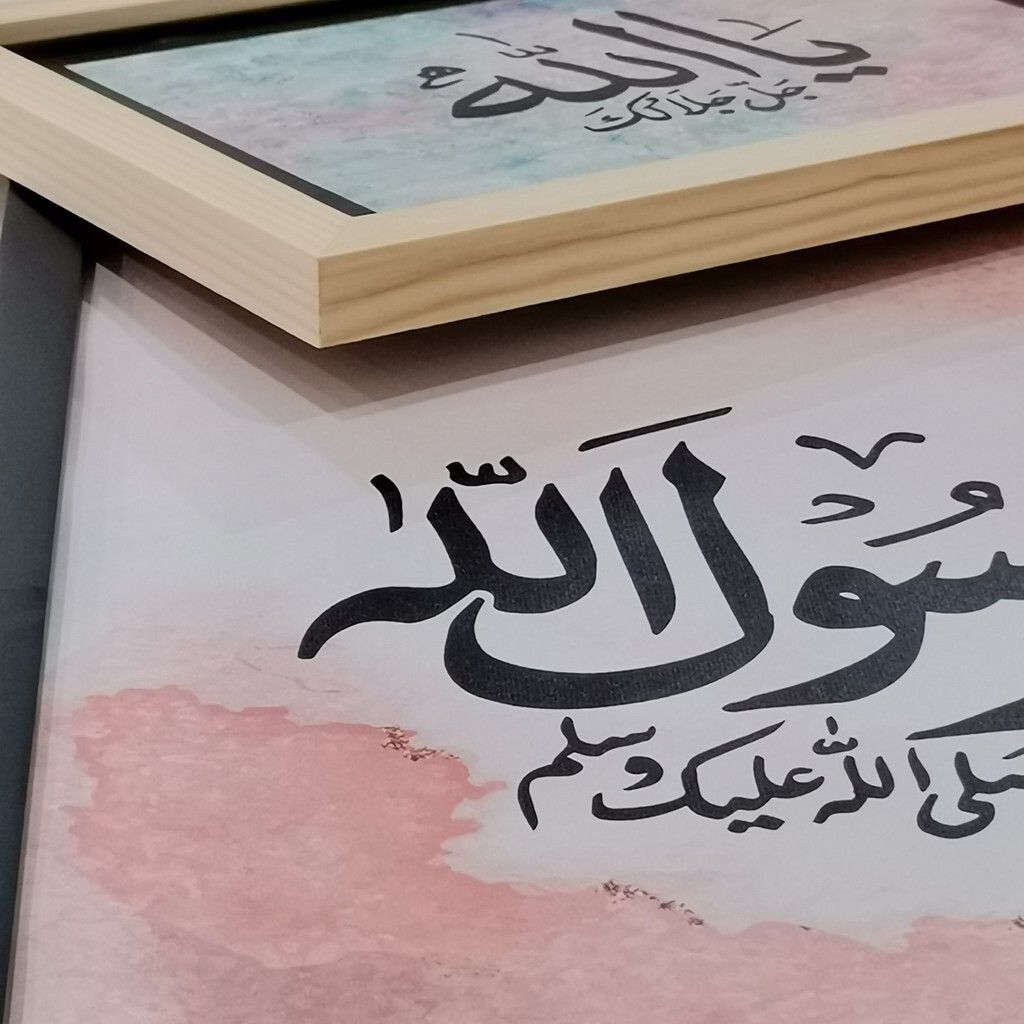 يَا اللّٰه
جَلَّ جَلَالُكَ
رسُوْلَ اللّٰه
صلى اللّٰه عليك وسلم